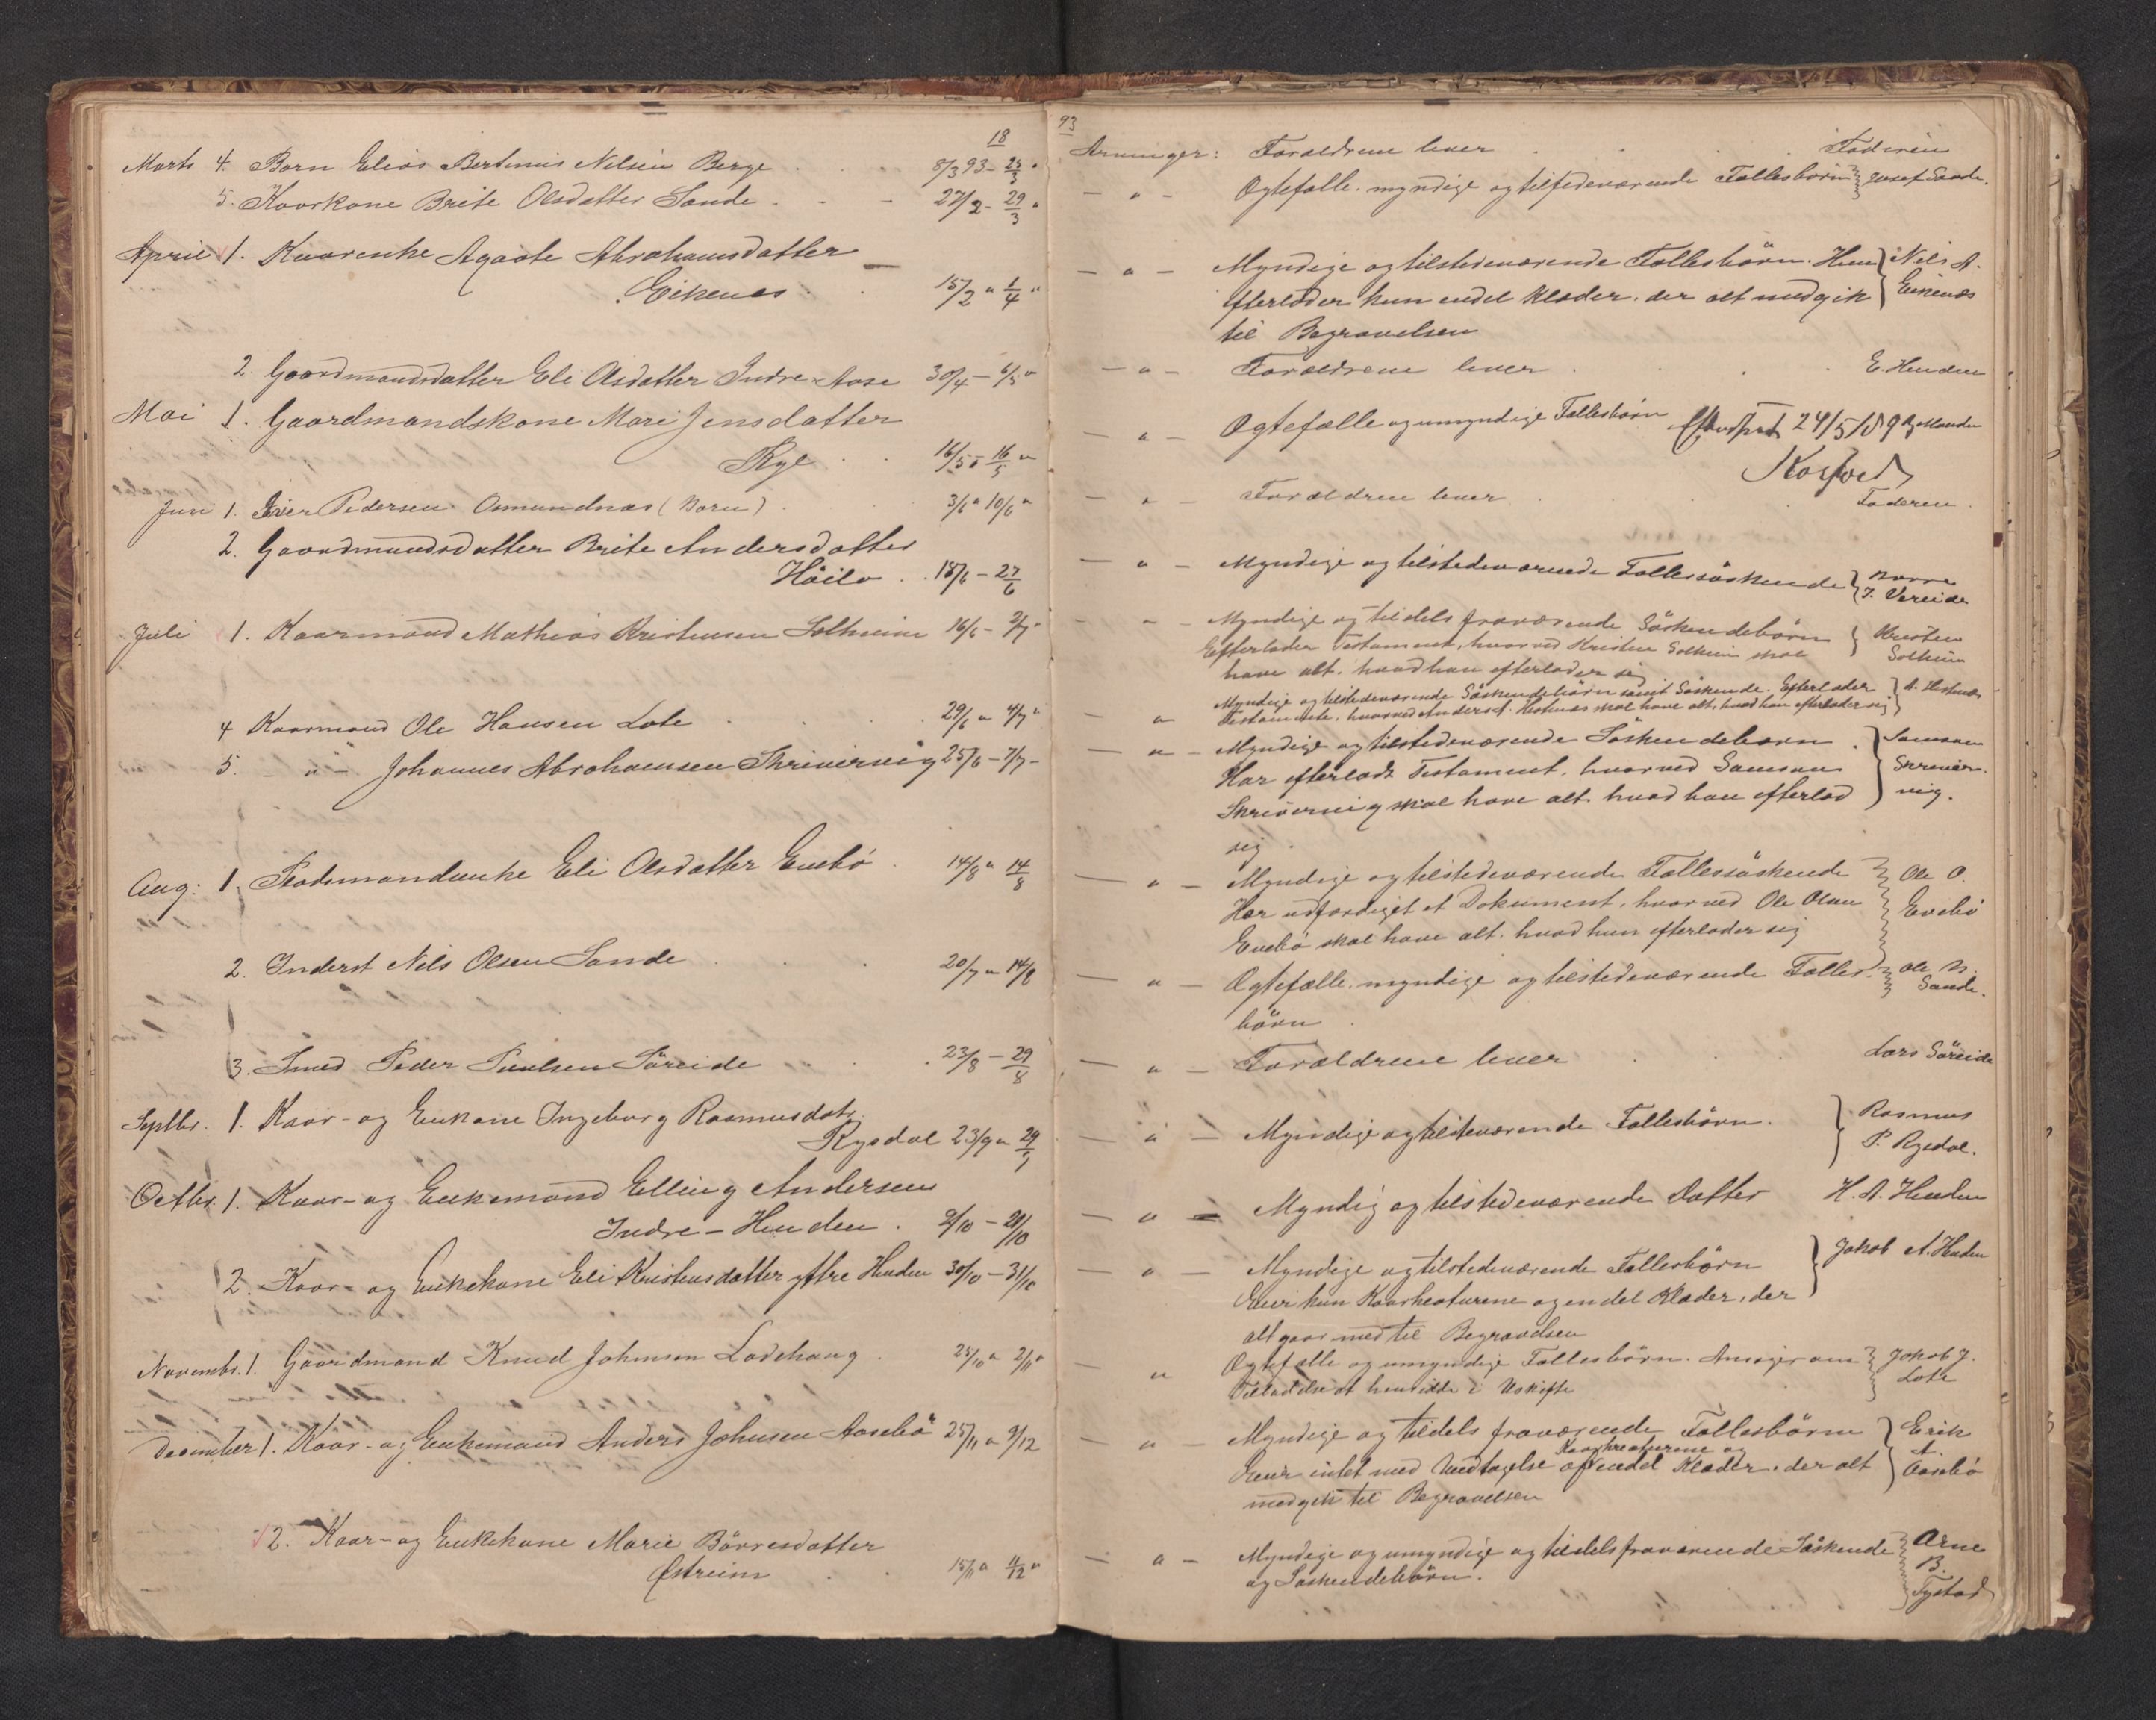 18
93
Marts 4. Barn Elias Bertinus Nilsen Berge 8/3 93 - 25/3 "
5. Kaarkone Brite Olsdatter Sande 27/2 - 29/3 "
April 1. Kaarenke Agaate Abrahamsdatter
Eikenes 15/2 " 1/4 "
2 Gaardmandsdatter Eli Olsdatter Indre-Aase 30/4 - 6/5 "
Mai 1. Gaardmandskone Mari Jensdatter
Rye 16/5 - 16/5 "
Juni 1. Iver Pedersen Osmundnæs (Barn) 3/6 " 10/6 "
2. Gaardmandsdatter Brite Andersdatter
Høilo 18/6 - 27/6
Juli 1. Kaarmand Mathias Kristensen Solheim 16/6 - 2/7 "
4 Kaarmand Ole Hansen Lote 29/6 " 4/7 "
5. - " - Johannes Abrahamsen Skrivervig 25/6 - 7/7 -
Aug: 1. Pladsmandsenke Eli Olsdatter Evebø 14/8 " 14/8
2. Inderst Nils Olsen Sande 20/7 " 14/8
3. Smed Peder Paulsen Søreide 23/8 - 29/8
Septbr. 1. Kaar- og Enkekone Ingeborg Rasmusdatr.
Rygdal 23/9 " 29/9
Octbr. 1. Kaar- og Enkemand Elling Andersen
Indre-Henden 9/10 - 21/10
2. Kaar- og Enkekone Eli Kristensdatter yttre Henden 30/10 - 31/10
Novembr. 1. Gaardmand Knud Johnsen Ladehaug 25/10 " 2/11 "
December 1. Kaar- og Enkemand Anders Johnsen Aasebø 25/11 " 9/12
2. Kaar- og Enkekone Marie Børresdatter
Østreim 15/11 " 11/12 "
Arvinger: Forældrene lever Faderen
- " - Ægtefælle, myndige og tilstedeværende Fællesbørn Josef Sande.
- " - Myndige og tilstedeværende Fællesbørn. Hun Nils A.
efterlader kun endel Klæder, der alt medgik Eikenæs
til Begravelsen
- " - Forældrene lever E. Henden
- " - Ægtefælle og umyndige Fællesbørn 24/5 189
- " - Forældrene lever Faderen
- " - Myndige og tilstedeværende Fællessøskende
J. Vereide
- " - Myndige og tildels fraværende Søskendebørn Kristen
Efterlader Testament, hvorved Kristen Solheim skal Solheim
have alt, hvad han efterlader sig
- " Myndige og tilstedeværende Søskendebørn samt Søskende. Efterlader A. Hestnæs
Testamente, hvorved Anders A. Hestnæs skal have alt, hvad han efterlader sig
- " - Myndige og tilstedeværende Søskendebørn. Samson
Har efterladt Testament, hvorved Samson Skriver-
Skrivervig skal have alt, hvad han efterlod vig.
sig.
- " - Myndige og tilstedeværende Fællessøskende Ole O.
Har udfærdiget et Dokument, hvorved Ole Olsen Evebø
Evebø skal have alt, hvad hun efterlader sig
- " - Ægtefælle, myndige og tilstedeværende Fælles- Ole N.
børn. Sande.
- " - Forældrene lever Lars Søreide
- " - Myndige og tilsteværende Fællesbørn. Rasmus
P. Rygdal.
- " - Myndig og tilstedeværende Datter H. A. Henden
- " - Myndige og tilstedeværende Fællesbørn Jakob A. Henden
Eier kun Kaarkreaturene og endel Klæder, der
alt gaar med til Begravelsen
" Ægtefælle og umyndige Fællesbørn. Ansøger om Jakob J.
Tilladelse at hensidde i Uskifte Lote
- " - Myndige og tildels fraværende Fællesbørn Erik
Kaarkreaturene og A.
Eier intet med Undtagelse af endel Klæder, der alt Aasebø
medgik til Begravelsen
- " - Myndige og umyndige og tildels fraværende Søskende Arne
og Søskendebørn. B.
Tystad